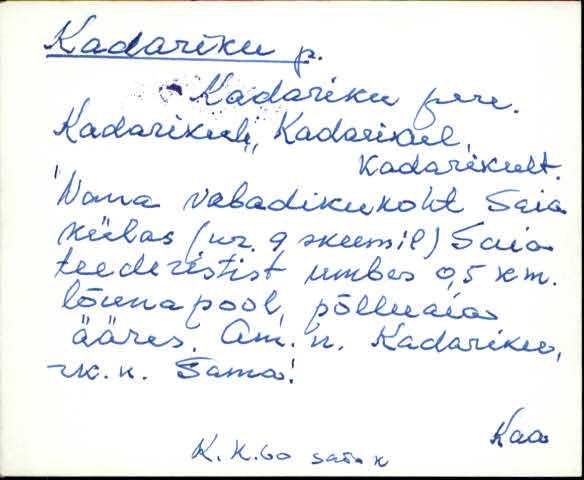 Kadariku p.
Kadariku pere.
Kadarikule, Kadarikul,
Kadarikult.
Vana vabadikukoht Saia
külas (nr. 9 skeemil) Saia
teederistist umbes 0,5 km.
lõuna pool, põlluaia
ääres. Am. n. Kadariku,
rk. n. Sama.
Kaa
K. K. 60